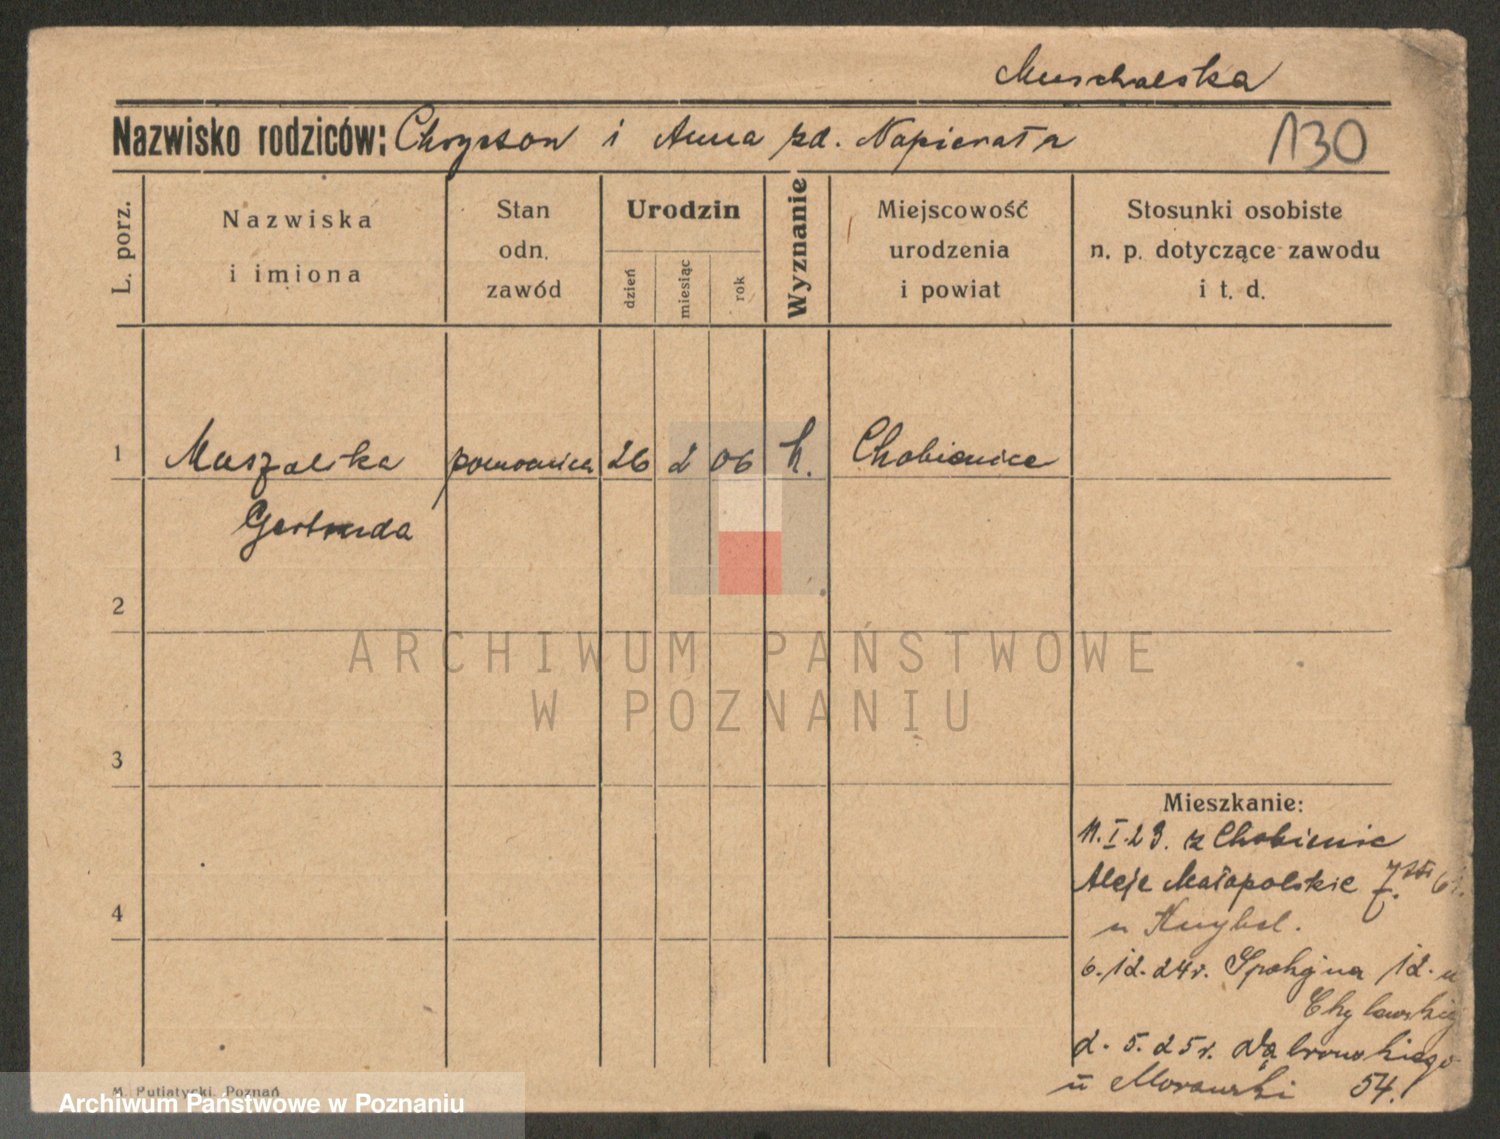 Muschalska
Nazwisko rodziców: Chryzton i Anna zd. Napierała 130
L. porz.
Nazwiska
i imiona
Stan
odn.
zawód
Urodzin
dzień
miesiąc
rok
Wyznanie
Miejscowość
urodzenia
i powiat
Stosunki osobiste
n. p. dotyczące zawodu
i t. d.
1 Muszalska pomocnica 26 2 06 k. Chobienice
Gertruda
2
3
4
Mieszkanie:
11.I.23. z Chobienic
Aleje Małopolskie 7
u
6.12.24r. Spokojna 12. u
2.5.25r. Dąbrowskiego
u Morawski 54.
M. Putiatycki, Poznań
ARCHIWUM PAŃSTWOWE
W POZNANIU
Archiwum Państwowe w Poznaniu